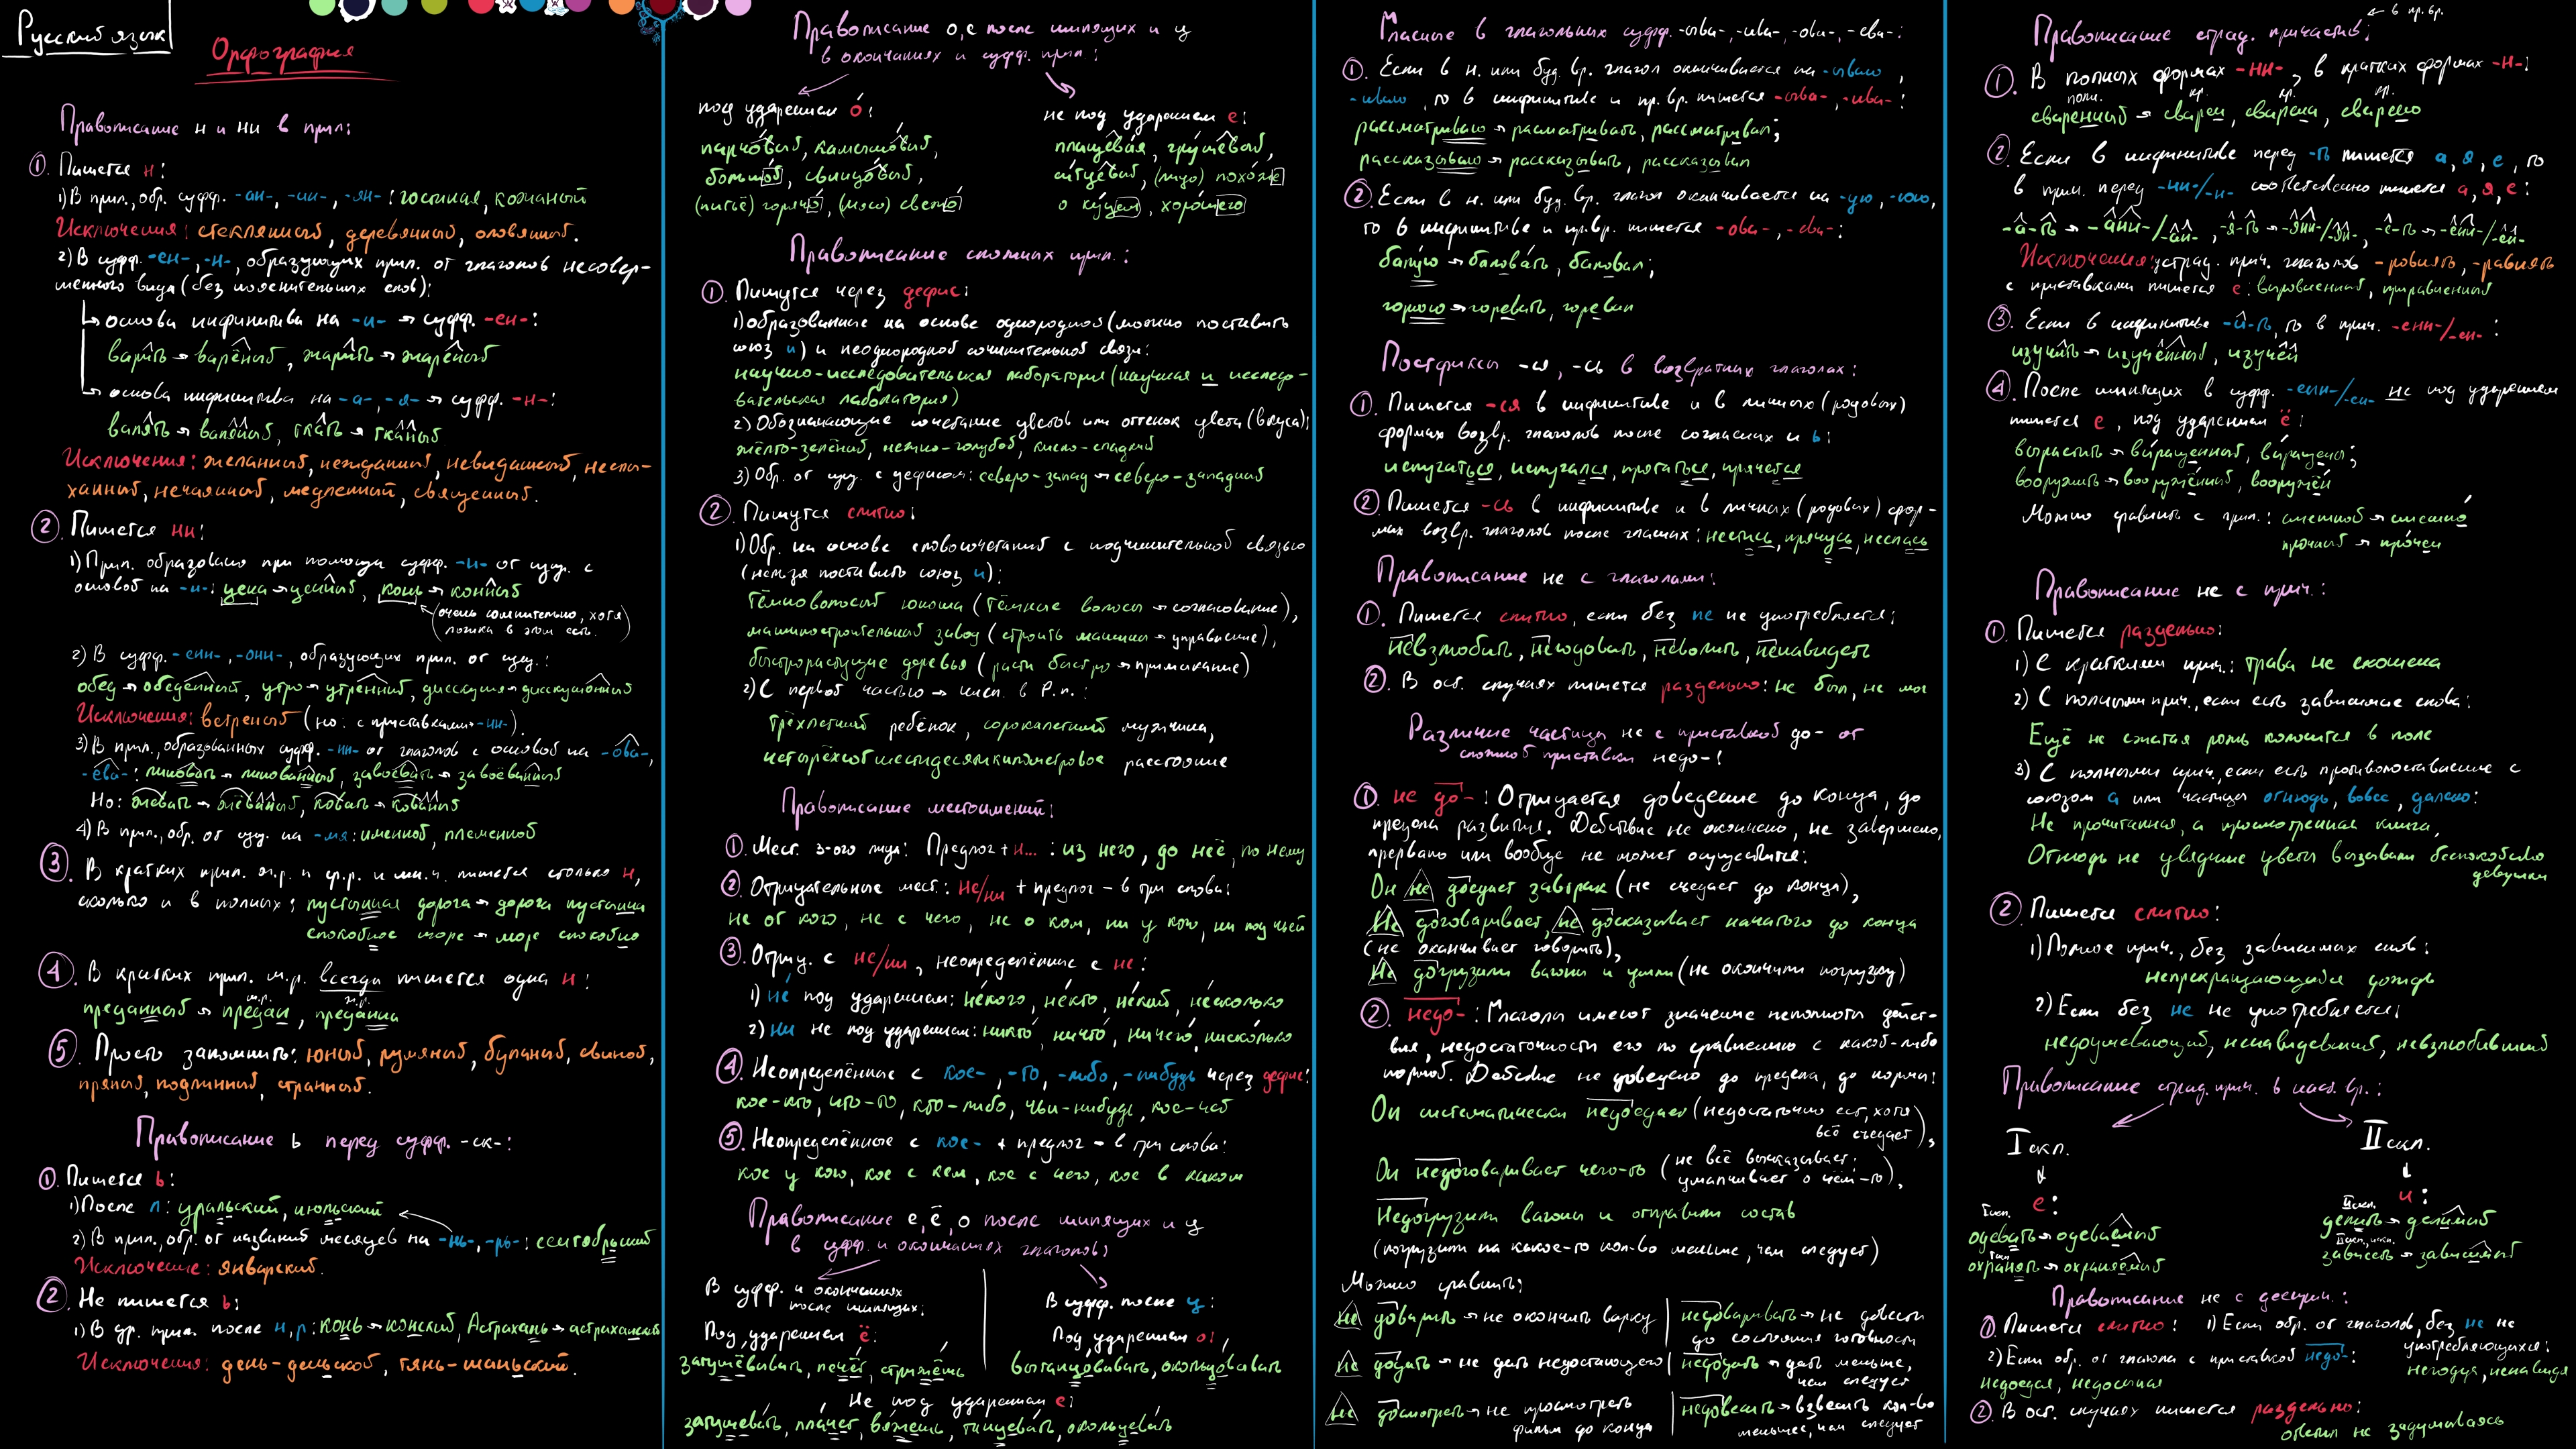 Русский язык
Орфография
Правописание н и нн в прил:
① Пишется н:
1) В прил., обр. суфф. -ан-, -ин-, -ян-: гостиная, кожаный
Исключения: стеклянный, деревянный, оловянный.
2) В суфф. -ен-, -н-, образующих прил. от глаголов несовер-
шенного вида (без пояснительных слов):
основа инфинитива на -и- → суфф. -ен-:
варить → варёный, жарить → жареный
основа инфинитива на -а-, -я- → суфф. -н-:
валять → валяный, ткать → тканый
Исключения: желанный, нежданный, невиданный, неслы-
ханный, нечаянный, медленный, священный.
②. Пишется нн:
1) Прил. образовано при помощи суфф. -н- от сущ. с
основой на -н-: цена → ценный, конь → конный
(очень сомнительно, хотя
логика в этом есть.)
2) В суфф. -енн-, -онн-, образующих прил. от сущ.:
обед → обеденный, утро → утренний, дискуссия → дискуссионный
Исключения: ветреный (но: с приставками → -нн-).
3) В прил., образованных суфф. -нн- от глаголов с основой на -ова-,
-ева-: линовать → линованный, завоевать → завоёванный
Но: жевать → жёваный, ковать → кованый
4) В прил., обр. от сущ. на -мя: именной, племенной
③. В кратких прил. ж.р. и ср.р. и мн.ч. пишется столько н,
сколько и в полных: пустынная дорога → дорога пустынна
спокойное море → море спокойно
④. В кратких прил. м.р. всегда пишется одна н:
м.р. ж.р.
преданный → предан, преданна
⑤. Просто запомнить: юный, румяный, буланый, свиной,
пряный, подлинный, странный.
Правописание ь перед суфф. -ск-:
①. Пишется ь:
1) После л: уральский, июльский
2) В прил., обр. от названий месяцев на -нь-, -рь-: сентябрьский
Исключение: январский.
②. Не пишется ь:
1) В др. прил. после н, р: конь → конский, Астрахань → астраханский
Исключения: день-деньской, тянь-шаньский.
Правописание о, е после шипящих и ц
в окончаниях и суфф. прил.:
под ударением о́:
парчо́вый, камышо́вый,
большой, свинцо́вый,
(питьё) горячо́, (мясо) свежо́
не под ударением е:
плащева́я, гру́шевый,
си́тцевый, (лицо) похо́же
о ку́цем, хоро́шего
Правописание сложных прил.:
①. Пишутся через дефис:
1) образованные на основе однородной (можно поставить
союз и) и неоднородной сочинительной связи:
научно-исследовательская лаборатория (научная и исследо-
вательская лаборатория)
2) Обозначающие сочетание цветов или оттенок цвета (вкуса):
жёлто-зелёный, нежно-голубой, кисло-сладкий
3) Обр. от сущ. с дефисом: северо-запад → северо-западный
②. Пишутся слитно:
1) Обр. на основе словосочетаний с подчинительной связью
(нельзя поставить союз и):
Тёмноволосый юноша (тёмные волосы → согласование),
машиностроительный завод (строить машины → управление),
быстрорастущие деревья (расти быстро → примыкание)
2) С первой частью → числ. в Р.п.:
трёхлетний ребёнок, сорокалетний мужчина,
четырёхсотшестидесятикилометровое расстояние
Правописание местоимений:
①. Мест. 3-ого лица: Предлог + н... : из него, до неё, по нему
②. Отрицательные мест.: Не/ни + предлог – в три слова:
не от кого, не с чего, не о ком, ни у кого, ни под чьей
③. Отриц. с не/ни, неопределённые с не:
1) не́ под ударением: не́кого, не́кто, не́кий, не́сколько
2) ни не под ударением: никто́, ничто́, ничего́, ниско́лько
④. Неопределённые с кое-, -то, -либо, -нибудь через дефис:
кое-кто, что-то, кто-либо, чьи-нибудь, кое-чей
⑤. Неопределённые с кое- + предлог – в три слова:
кое у кого, кое с кем, кое с чего, кое в каком
Правописание е, ё, о после шипящих и ц
в суфф. и окончаниях глаголов:
В суфф. и окончаниях
после шипящих:
Под ударением ё:
затушёвывать, печёт, стрижёшь
В суфф. после ц:
Под ударением о:
вытанцовывать, окольцовывать
Не под ударением е:
затушева́ть, пла́чет, вя́жешь, танцева́ть, окольцева́ть
Гласные в глагольных суфф. -ыва-, -ива-, -ова-, -ева-:
①. Если в н. или буд. вр. глагол оканчивается на -ываю,
-иваю, то в инфинитиве и пр.вр. пишется -ыва-, -ива-:
рассматриваю → расматривать, рассматривал;
рассказываю → рассказывать, рассказывал
②. Если в н. или буд. вр. глагол оканчивается на -ую, -юю,
то в инфинитиве и пр.вр. пишется -ова-, -ева-:
балую → баловать, баловал;
горюю → горевать, горевал
Постфиксы -ся, -сь в возвратных глаголах:
①. Пишется -ся в инфинитиве и в личных (родовых)
формах возвр. глаголов после согласных и ь:
испугаться, испугался, прятаться, прячется
②. Пишется -сь в инфинитиве и в личных (родовых) фор-
мах возвр. глаголов после гласных: нестись, прячусь, неслась
Правописание не с глаголами:
①. Пишется слитно, если без не не употребляется:
невзлюбить, негодовать, неволить, ненавидеть
②. В ост. случаях пишется раздельно: не был, не мог
Различие частицы не с приставкой до- от
сложной приставки недо-:
①. не до-: Отрицается доведение до конца, до
предела развития. Действие не окончено, не завершено,
прервано или вообще не может осуществится:
Он не доедает завтрак (не съедает до конца),
Не договаривает, не досказывает начатого до конца
(не оканчивает говорить),
Не догрузили вагоны и ушли (не окончили погрузку)
②. недо-: Глаголы имеют значение неполноты дейст-
вия, недостаточности его по сравнению с какой-либо
нормой. Действие не доведено до предела, до нормы:
Он систематически недоедает (недостаточно ест, хотя
всё съедает),
Он недоговаривает чего-то (не всё высказывает:
умалчивает о чём-то),
Недогрузили вагоны и отправили состав
(погрузили на какое-то кол-во меньше, чем следует)
Можно сравнить:
не доварить → не окончить варку | недоваривать → не довести
до состояния готовности
не додать → не дать недостающего | недодать → дать меньше,
чем следует
не досмотреть → не просмотреть
фильм до конца | недовесить → взвесить кол-во
меньшее, чем следует
Правописание страд. причастий: ← в пр. вр.
①. В полных формах -нн-, в кратких формах -н-:
полн. кр. кр. кр.
сваренный → сварен, сварена, сварено
②. Если в инфинитиве перед -ть пишется а, я, е, то
в прич. перед -нн-/-н- соответственно пишется а, я, е:
-а-ть → -анн-/-ан-, -я-ть → -янн-/-ян-, -е-ть → -енн-/-ен-
Исключения: у страд. прич. глаголов -ровнять, -равнять
с приставками пишется е: выровненный, приравненный
③. Если в инфинитиве -и-ть, то в прич. -енн-/-ен-:
изучить → изученный, изучен
④. После шипящих в суфф. -енн-/-ен- не под ударением
пишется е, под ударением ё:
вырастить → выращенный, выращены;
вооружить → вооружённый, вооружён
Можно сравнить с прил.: смешной → смешно́
прочный → про́чен
Правописание не с прич.:
①. Пишется раздельно:
1) С краткими прич.: трава не скошена
2) С полными прич., если есть зависимые слова:
Ещё не сжатая рожь колосится в поле
3) С полными прич., если есть противопоставление с
союзом а или частицы отнюдь, вовсе, далеко:
Не прочитанная, а просмотренная книга,
Отнюдь не увядшие цветы вызывали беспокойство
девушки
②. Пишется слитно:
1) Полное прич., без зависимых слов:
непрекращающийся дождь
2) Если без не не употребляется:
недоумевающий, ненавидевший, невзлюбивший
Правописание страд. прич. в наст. вр.:
I скл.
е:
I скл.
одевать → одеваемый
I скл.
охранять → охраняемый
II скл.
и:
II скл.
делить → делимый
II скл., искл.
зависеть → зависимый
Правописание не с дееприч.:
①. Пишется слитно: 1) Если обр. от глаголов, без не не
употребляющихся:
негодуя, ненавидя
2) Если обр. от глагола с приставкой недо-:
недоедая, недосыпая
②. В ост. случаях пишется раздельно:
ответил не задумываясь